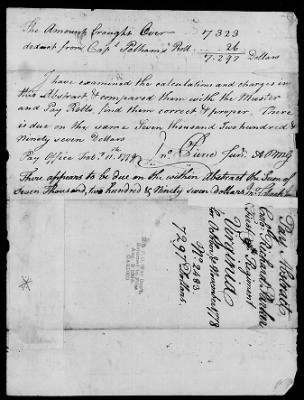 The Amount brought Over 7323
deduct from Capt. Pelham's Roll .. 26
7.297 Dollars
I have examined the calculations and charges in
this Abstract & compared them with the Muster
and Pay Rolls, find them correct & proper. There
is due on the same Seven thousand two hundred &
Ninety seven Dollars
Pay Office Feb. 11th 1779
There appears to be due on the within Abstract the Sum of
Seven Thousand, two hundred & Ninety seven dollars
Pay Abstract
Colo. Richard Parker
First Regiment
Virginia
for October & November 1778
No. 2683
7297 Dollars